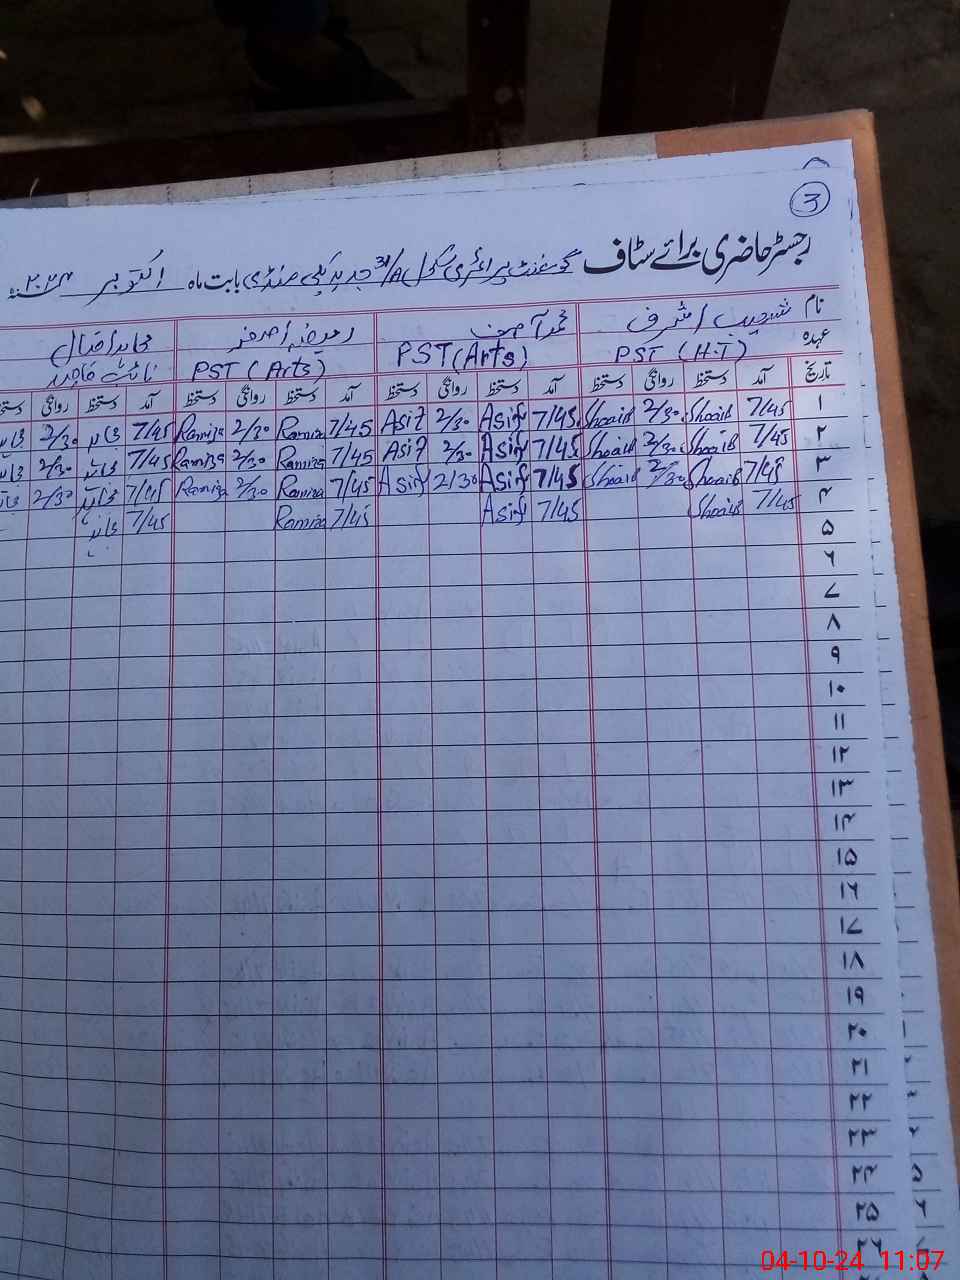 3
رجسٹر حاضری برائے سٹاف گورنمنٹ پرائمری سکول 31/A جدید پکی منڈی بابت ماہ اکتوبر ۲۰۲۴
نام شعیب اشرف محمد آصف رمیضہ اصغر مجاہد اقبال
عہدہ PST (H.T) PST (Arts) PST (Arts) نائب قاصد
تاریخ آمد دستخط روانگی دستخط آمد دستخط روانگی دستخط آمد دستخط روانگی دستخط آمد دستخط روانگی
۱ 7/45 Shoaib 2/30 Shoaib 7/45 Asif 2/30 Asif 7/45 Ramiza 2/30 Ramiza 7/45 مجاہد 2/30
۲ 7/45 Shoaib 2/30 Shoaib 7/45 Asif 2/30 Asif 7/45 Ramiza 2/30 Ramiza 7/45 مجاہد 2/30
۳ 7/45 Shoaib 2/30 Shoaib 7/45 Asif 2/30 Asif 7/45 Ramiza 2/30 Ramiza 7/45 مجاہد 2/30
۴ 7/45 Shoaib 7/45 Asif 7/45 Ramiza 7/45 مجاہد
۵
۶
۷
۸
۹
۱۰
۱۱
۱۲
۱۳
۱۴
۱۵
۱۶
۱۷
۱۸
۱۹
۲۰
۲۱
۲۲
۲۳
۲۴
۲۵
۲۶
04-10-24 11:07